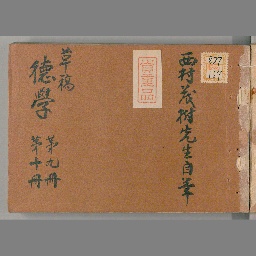 西村茂樹先生自筆
貴重品
草稿
徳學
第九冊
第十冊